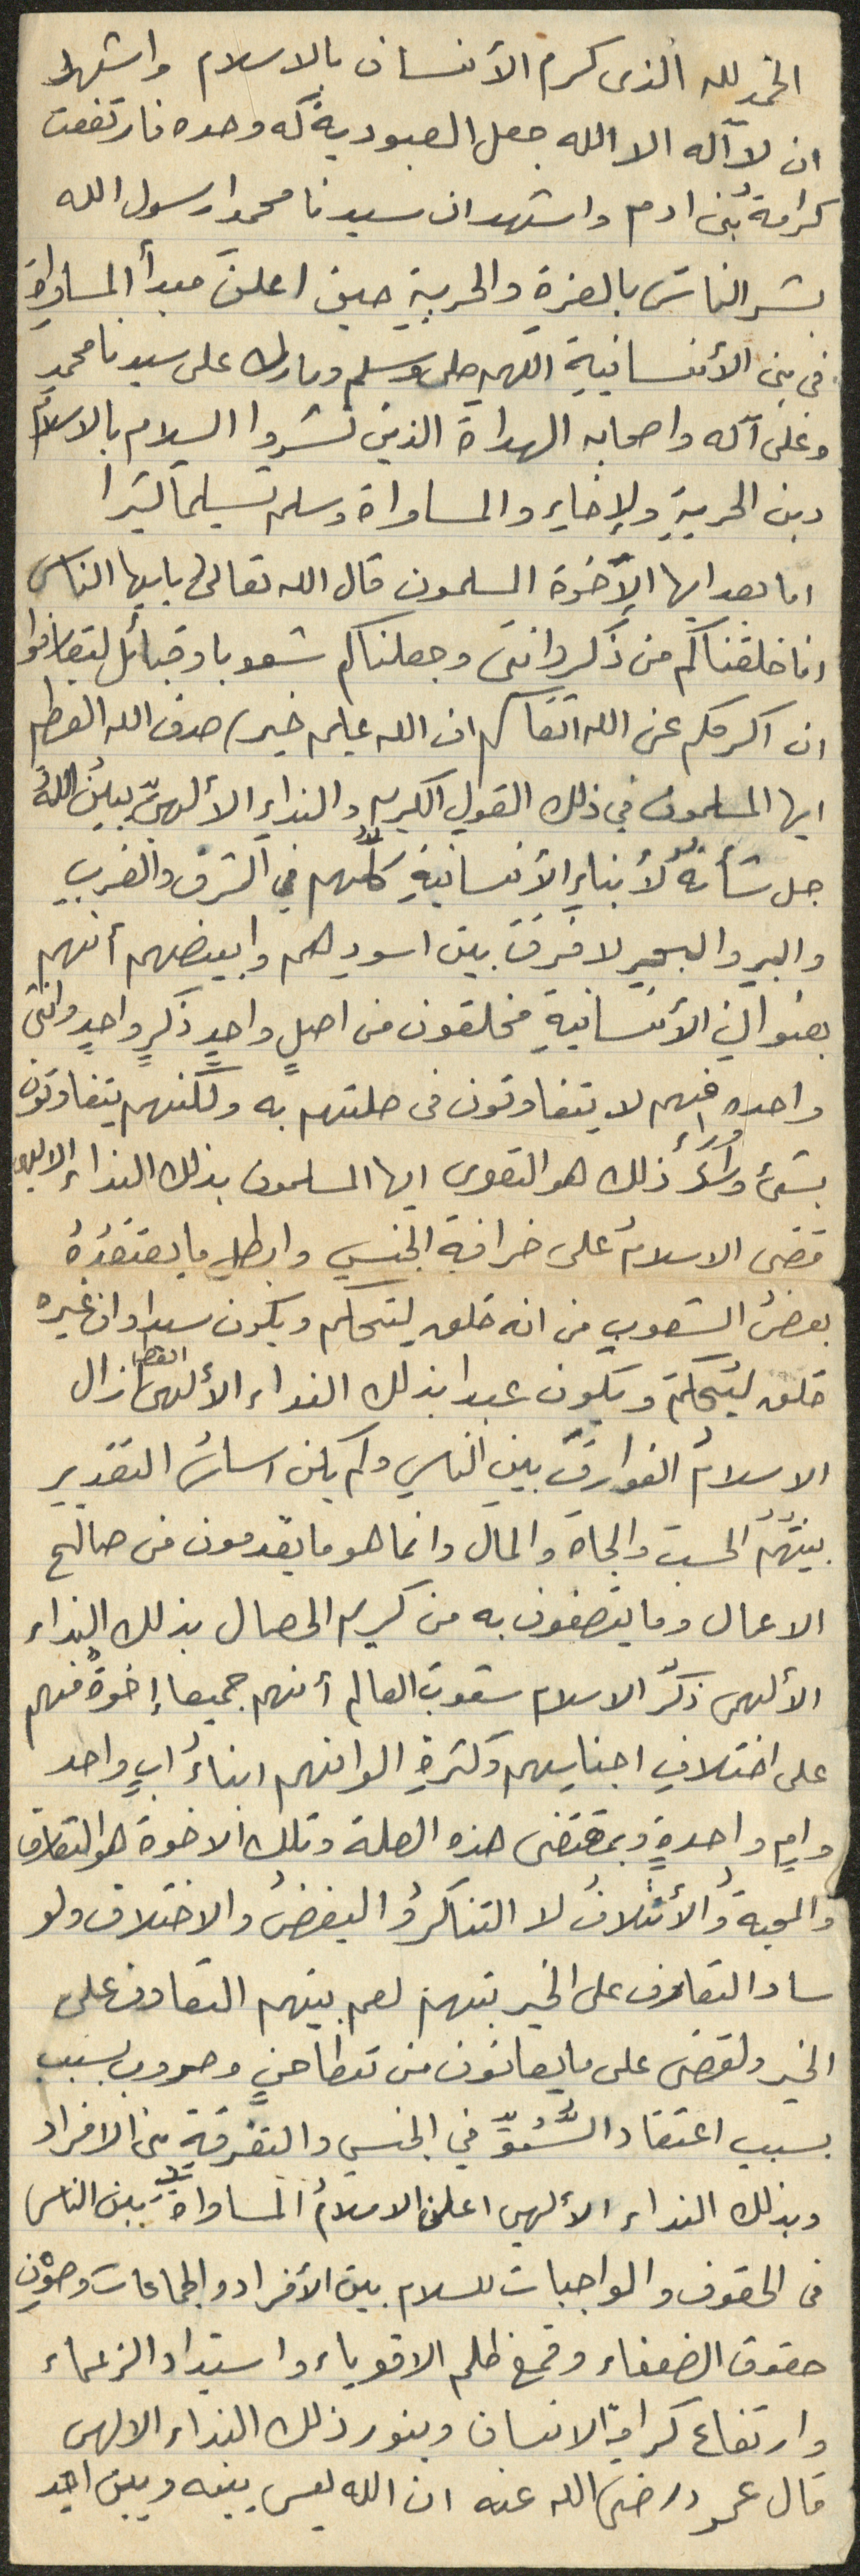 الحمد لله الذى كرم الأنسان بالاسلام واشهد
ان لآاله الا الله جعل العبودية له وحده فارتفعت
كرامة بنى ادم واشهد ان سيدنا محمدا رسول الله
بشر الناسَ بالعزةِ والحريةِ حين اعلنَ مبدأ المساواة
فى بنى الأنسانيةِ اللهم صلى وسلم وبارك على سيدنا محمدٍ
وعلى آله واصحابه الهداة الذين نشروا السلام بالاسلام
دين الحريةِ والإخاءِ والمساواة وسلم تسليماً كثيرا
اما بعد ايها الإخوة المسلمون قال الله تعالى ياايها الناس
انا خلقناكم من ذكر وانثى وجعلناكم شعوبا وقبائل لتعارفوا
ان اكرمكم عن الله اتقاكم ان الله عليم خبير) صدق الله العظيم
ايها المسلمون في ذلك القولِ الكريم والنداءِ الألهىِّ يبينُ اللهُ
جل شأنهُ لأبناءِ الأنسانيةِ كلِّهم في الشرق والغربِ
والبرِ والبحرِ لا فرقَ بين اسودِهم وابيضهم أنهم
بعنوانِ الأنسانيةِ مخلقون من اصلٍ واحدٍ ذكرٍ واحدٍ وانثى
واحده فهم لا يتفاوتون فى صلتهم به ولكنهم يتفاوتون
بشئ وراء ذلك هو التقوى ايها المسلمون بذلك النداء الالهى
وراء
قضى الاسلامُ على خرافة الجنسِ وابطل ما يعتقدُهُ
بعضُ الشعوبِ من انه خلق ليتحكم ويكون سيدا وان غيره
خلق ليُتحكمَ ويكون عبدا بذلك النداء الألهى ازال
الاسلامُ الفوارقَ بينِ الناسِ ولم يكن اساسُ التقديرِ
بينَهُم الحسبَ والجاهَ والمالَ وانما هو ما يقدمون من صالح
الاعمال وما يتصفون به من كريم الخصال بذلك النداء
الألهى ذكّر الاسلام شعوبَ العالم أنهم جميعا إخوةٌ فهم
على اختلافِ اجناسِهم وكثرةِ الوانهم ابناءُ ابٍ واحد
وامٍ واحدةٍ وبمقتضى هذه الصلة وتلك الاخوة هو التعارف
والمحبةُ والأئتلافُ لا التناكرُ والبغضُ والاختلاف ولو
ساد التعارف على الخير بينهم لعم بينهم التعاون على
الخير ولقضى على ما يعانون من تطاحنٍ وحروب بسبب
بسبب اعتقاد السُّمُوِّ في الجنسِ والتفرقةِ بين الافراد
وبذلك النداء الألهى اعلن الاسلامُ المساواةَ بين الناس
فى الحقوق والواجبات للسلام بين الأفراد والجماعات وصوْنِ
حقوق الضعفاء وقمعَ ظلم الاقوياء واستبداد الزعماء
وارتفاع كرامة الانسان وبنور ذلك النداء الالهى
قال عمر رضى الله عنه ان الله ليس بينه وبين احد